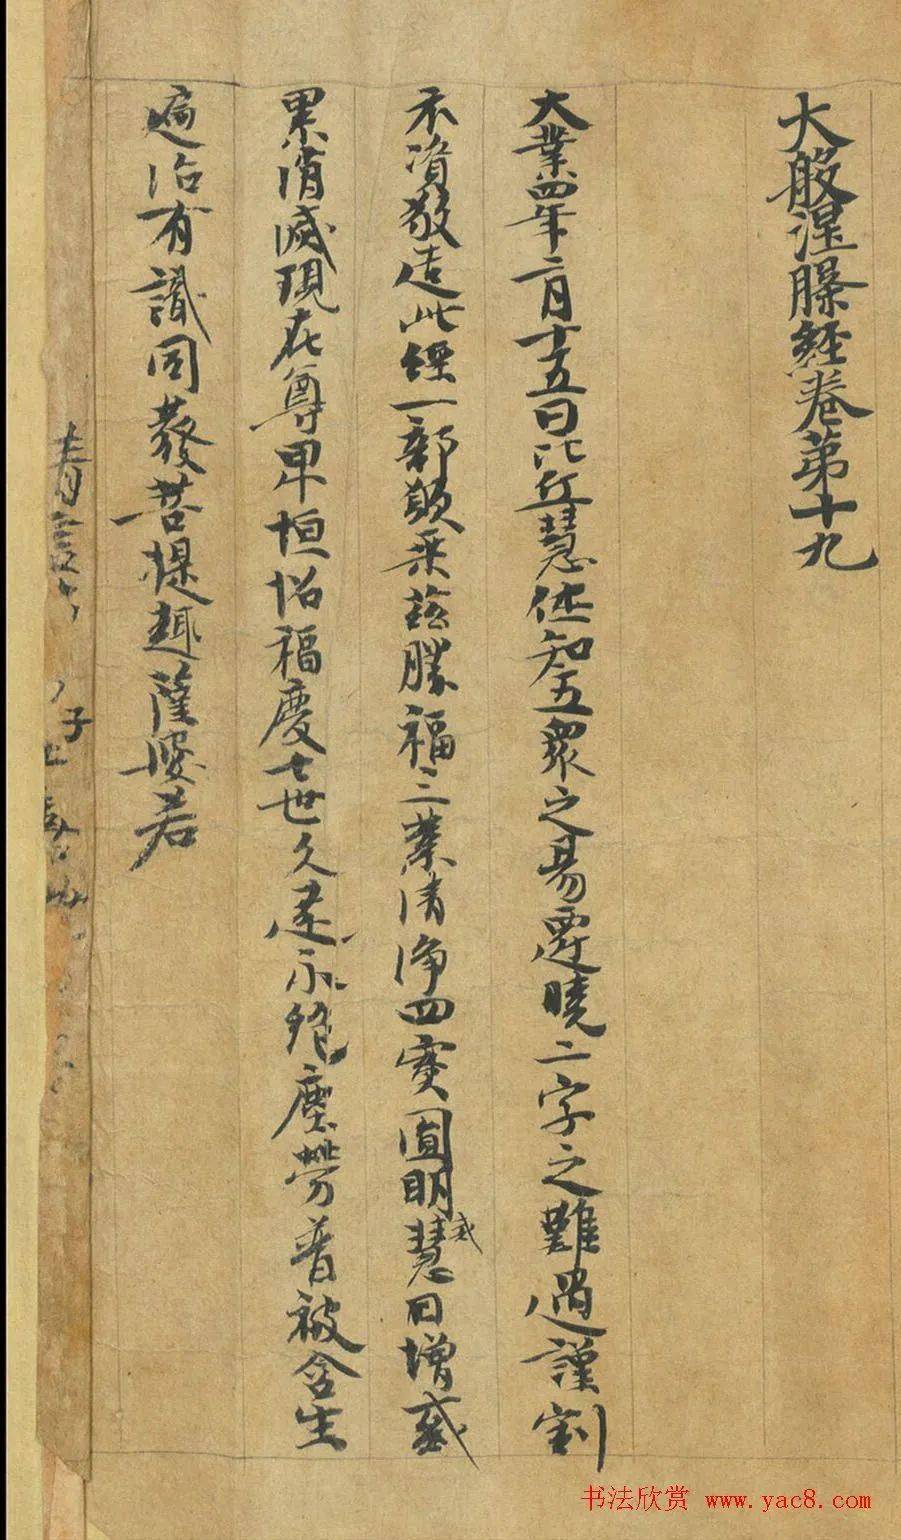 大般涅槃經卷第十九
大業四年二月十五日比丘慧休知五眾之易遷曉二字之難遇謹割
衣資敬造此經一部願乘茲勝福三業清淨四實圓明戒慧日增惑
累消滅現在尊卑恒招福慶七世久遠永絕塵勞普被含生
遍洽有識同發菩提趣薩婆若
书法欣赏 www.yac8.com